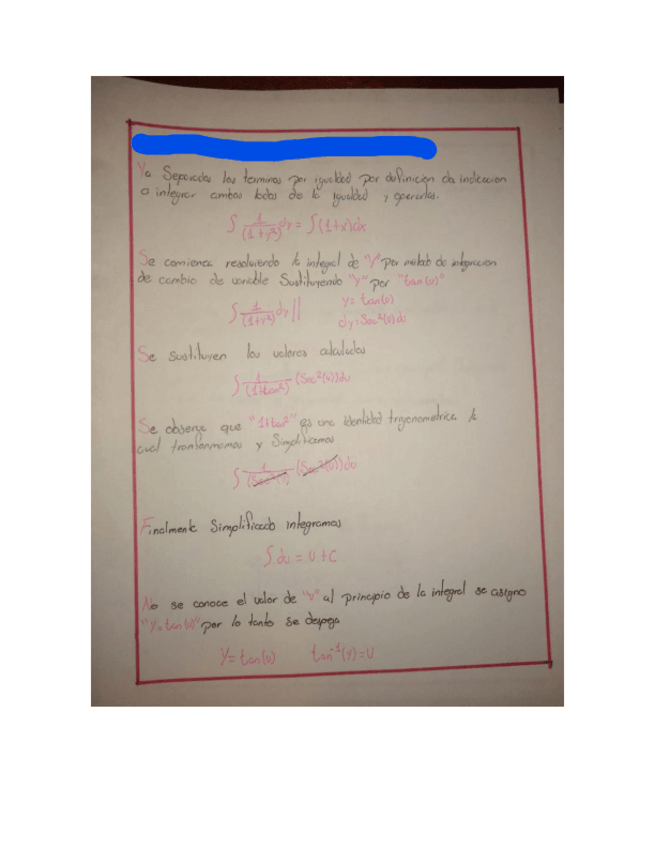 Ya Separados los terminos por igualdad por definicion da indicacion
a integrar ambos lados de la igualdad y operarlos.
∫ 1/(1+y²) dy = ∫(1+x)dx
Se comienza resolviendo la integral de "y" por metodo de integracion
de cambio de variable Sustituyendo "y" por "tan(u)"
∫ 1/(1+y²) dy || y = tan(u)
dy = Sec²(u) du
Se sustituyen los valores calculados
∫ 1/(1+tan²) (Sec²(u))du
Se observa que "1+tan²" es una identidad trigonometrica la
cual transformamos y Simplificamos
∫ 1/(Sec²(u)) (Sec²(u))du
Finalmente Simplificado integramos
∫ du = U + C
No se conoce el valor de "u" al principio de la integral se asigno
"y=tan(u)" por lo tanto se despeja
Y = tan(u) tan⁻¹(y) = U